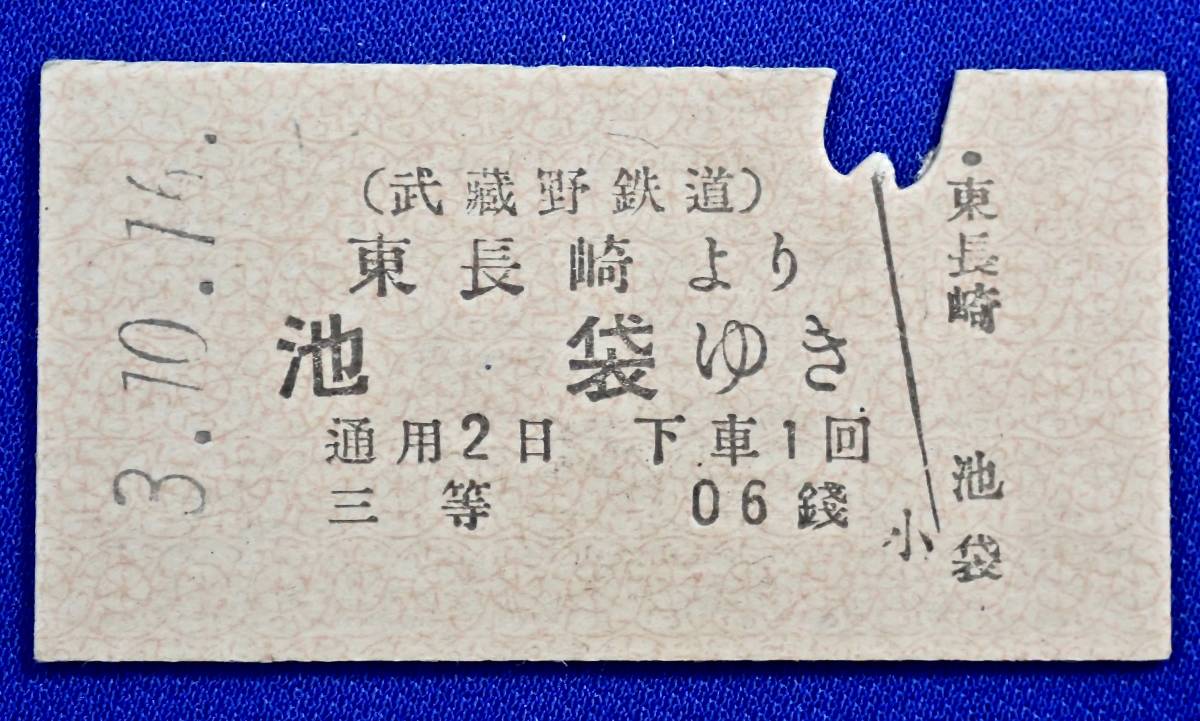 3.10.16.
(武藏野鉄道)
東長崎より
池袋ゆき
通用2日 下車1回
三等 06錢
小
・東長崎
池袋